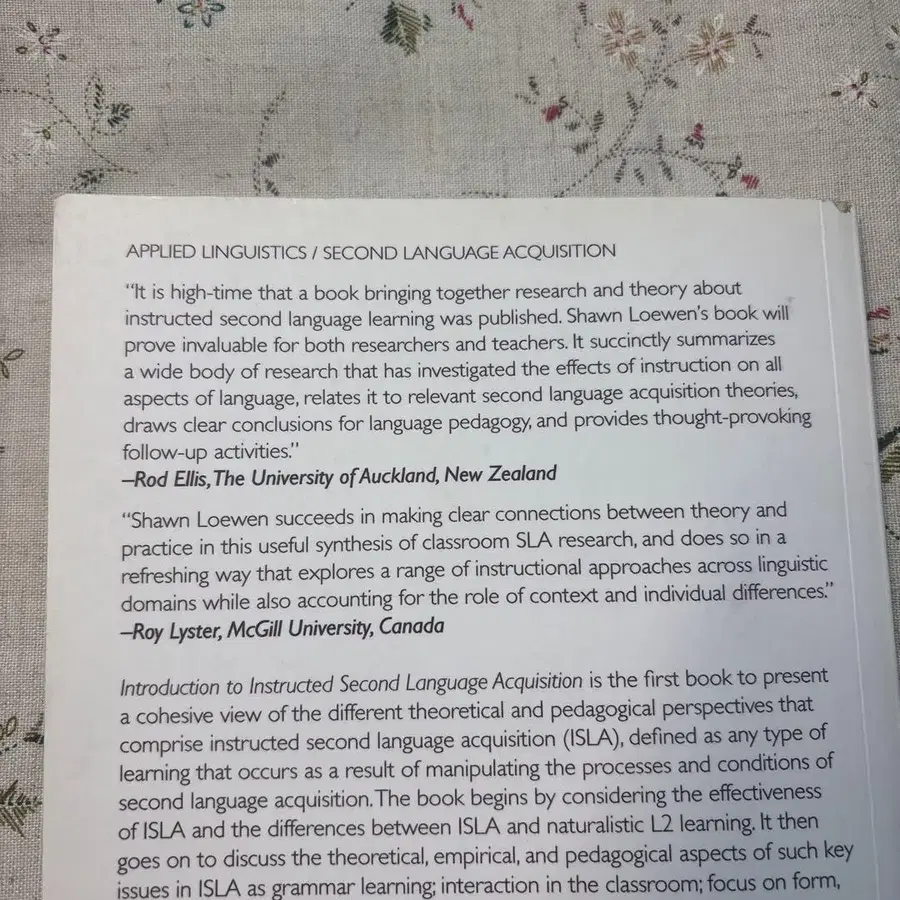 APPLIED LINGUISTICS / SECOND LANGUAGE ACQUISITION
“It is high-time that a book bringing together research and theory about
instructed second language learning was published. Shawn Loewen’s book will
prove invaluable for both researchers and teachers. It succinctly summarizes
a wide body of research that has investigated the effects of instruction on all
aspects of language, relates it to relevant second language acquisition theories,
draws clear conclusions for language pedagogy, and provides thought-provoking
follow-up activities.”
—Rod Ellis, The University of Auckland, New Zealand
“Shawn Loewen succeeds in making clear connections between theory and
practice in this useful synthesis of classroom SLA research, and does so in a
refreshing way that explores a range of instructional approaches across linguistic
domains while also accounting for the role of context and individual differences.”
—Roy Lyster, McGill University, Canada
Introduction to Instructed Second Language Acquisition is the first book to present
a cohesive view of the different theoretical and pedagogical perspectives that
comprise instructed second language acquisition (ISLA), defined as any type of
learning that occurs as a result of manipulating the processes and conditions of
second language acquisition. The book begins by considering the effectiveness
of ISLA and the differences between ISLA and naturalistic L2 learning. It then
goes on to discuss the theoretical, empirical, and pedagogical aspects of such key
issues in ISLA as grammar learning; interaction in the classroom; focus on form,